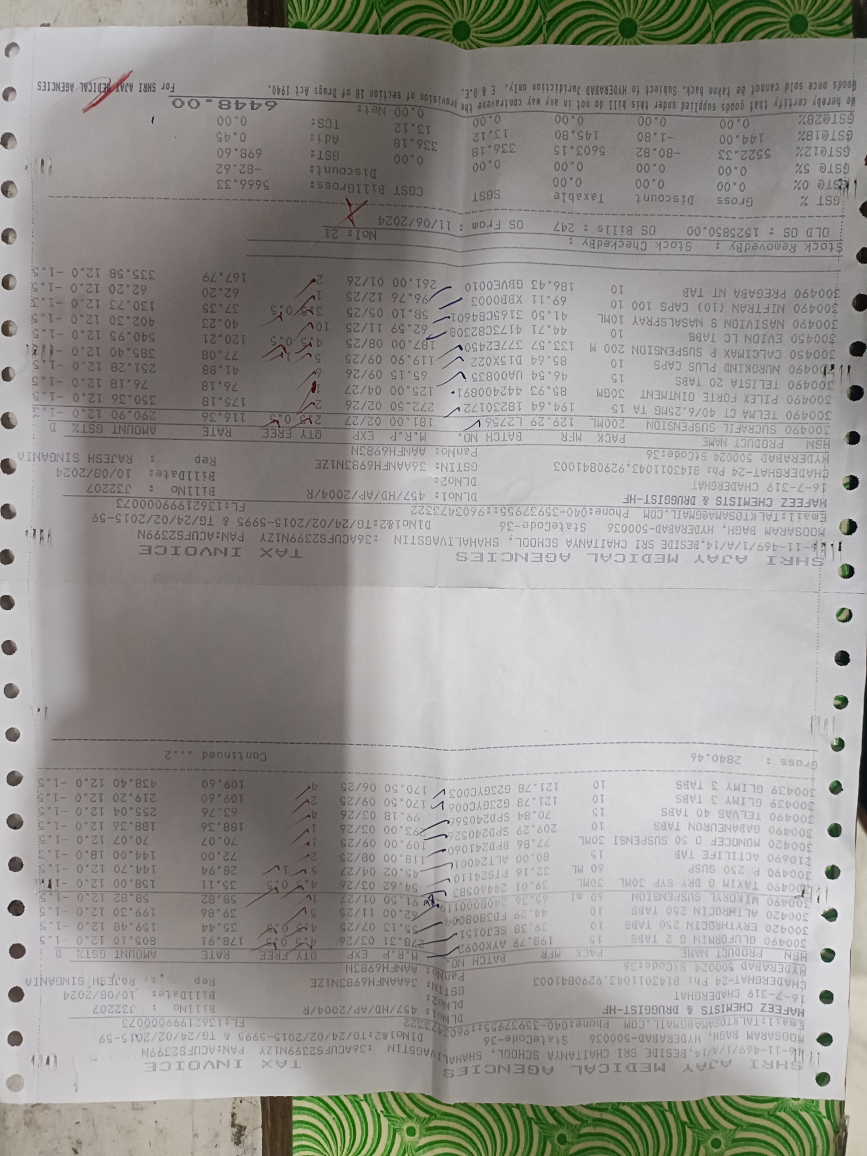 SHRI AJAY MEDICAL AGENCIES TAX INVOICE
16-11-469/1/A/14,BESIDE SRI CHAITANYA SCHOOL, SHAHALIVAGSTIN :36ACUFS2399N1ZY PAN:ACUFS2399N
MOOSARAM BAGH, HYDERABAD-500036 StateCode-36 DlNo1&2:TG/24/02/2015-5995 & TG/24/02/2015-59
Phone:040-35937955
HAFEEZ CHEMISTS & DRUGGIST-HF
16-7-319 CHADERGHAT DLNo1: 457/HD/AP/2004/R BillNo : J32207
CHADERGHAT-24 Ph: 8143011043,9290841003 DLNo2: BillDate: 10/08/2024
HYDERABAD 500024 StCode:36 GSTIN: 36AANFH6983N1ZE Rep : RAJESH SINGANIA
PanNo: AANFH6983N
HSN PRODUCT NAME PACK MFR BATCH NO. M.R.P EXP QTY FREE RATE AMOUNT GST% D
300490 GLUFORMIN G 2 TABS 15 198.79 278.31 03/26 4.5 0.5 178.91 805.10 12.0 -1.5
300420 ERYTHROCIN 250 TABS 10 39.38 55.13 07/25 4.5 0.5 35.44 159.48 12.0 -1.5
300420 ALTHROCIN 250 TABS 10 44.29 62.00 11/25 5 39.86 199.30 12.0 -1.5
300490 SUSPENSION 60 ml 65.36 91.50 01/27 1 58.82 58.82 12.0 -1.5
300490 TAXIM O DRY SYP 30ML 30ML 39.01 24460583 54.62 03/26 4.5 0.5 35.11 158.00 12.0 -1.5
300490 P 250 SUSP 60 ML 32.16 45.02 04/27 5 1 28.94 144.70 12.0 -1.5
210690 ACTILIFE TAB 15 80.00 118.00 08/25 2 72.00 144.00 18.0 -1.3
300420 MONOCEF O 50 SUSPENSI 30ML 77.86 109.00 09/25 1 70.07 70.07 12.0 -1.5
300490 GABANEURON TABS 10 209.29 SPD240526 293.00 03/26 1 188.36 188.36 12.0 -1.5
300490 TELVAS 40 TABS 15 70.84 99.18 03/26 4 63.76 255.04 12.0 -1.5
300439 GLIMY 3 TABS 10 121.78 G23GYC006 170.50 09/25 2 109.60 219.20 12.0 -1.5
300439 GLIMY 3 TABS 10 121.78 G23GYC003 170.50 06/25 4 109.60 438.40 12.0 -1.5
Gross : 2840.46 Continued ...2
SHRI AJAY MEDICAL AGENCIES TAX INVOICE
16-11-469/1/A/14,BESIDE SRI CHAITANYA SCHOOL, SHAHALIVAGSTIN :36ACUFS2399N1ZY PAN:ACUFS2399N
MOOSARAM BAGH, HYDERABAD-500036 StateCode-36 DlNo1&2:TG/24/02/2015-5995 & TG/24/02/2015-59
Phone:040-35937955:9603473322
HAFEEZ CHEMISTS & DRUGGIST-HF
16-7-319 CHADERGHAT DLNo1: 457/HD/AP/2004/R BillNo : J32207
CHADERGHAT-24 Ph: 8143011043,9290841003 DLNo2: BillDate: 10/08/2024
HYDERABAD 500024 StCode:36 GSTIN: 36AANFH6983N1ZE Rep : RAJESH SINGANIA
PanNo: AANFH6983N
HSN PRODUCT NAME PACK MFR BATCH NO. M.R.P EXP QTY FREE RATE AMOUNT GST% D
300490 SUCRAFIL SUSPENSION 200ML 129.29 L2756 181.00 02/27 2.5 0.5 116.36 290.90 12.0 -1.5
300490 TELMA CT 40/6.25MG TA 15 194.64 18230172 272.50 02/26 2 175.18 350.36 12.0 -1.5
300490 PILEX FORTE OINTMENT 30GM 85.93 442400891 125.00 04/27 1 76.18 76.18 12.0
300490 TELISTA 20 TABS 15 46.54 UA00835 65.15 09/26 6 41.88 251.28 12.0 -1.5
300490 NUROKIND PLUS CAPS 10 85.64 D15X022 119.90 09/25 5 77.08 385.40 12.0 -1.5
300450 CALCIMAX P SUSPENSION 200 M 133.57 377E2450 187.00 08/25 4.5 0.5 120.21 540.95 12.0 -1.5
300450 EVION LC TABS 10 44.71 417C382308 62.59 11/25 10 40.23 402.30 12.0 -1.5
300490 NASIVION S NASALSPRAY 10ML 41.50 58.10 05/25 3.5 0.5 37.35 130.73 12.0 -1.5
300490 NIFTRAN (10) CAPS 100 10 69.11 XBX0003 96.76 12/25 1 62.20 62.20 12.0 -1.5
300490 PREGABA NT TAB 10 186.43 GBVE0010 261.00 01/26 2 167.79 335.58 12.0 -1.5
Stock RemovedBy : Stock CheckedBy : NoI: 21
OLD OS : 1525850.00 OS Bills : 247 OS From : 11/06/2024
GST % Gross Discount Taxable SGST CGST BillGross: 5666.33
GST@ 0% 0.00 0.00 0.00 Discount: -82.62
GST@ 5% 0.00 0.00 0.00 0.00 0.00 GST: 698.60
GST@12% 5522.33 -80.82 5603.15 336.18 336.18 Adj: 0.45
GST@18% 144.00 -1.80 145.80 13.12 13.12 TCS: 0.00
GST@28% 0.00 0.00 0.00 0.00 0.00 Net: 6448.00
We hereby certify that goods supplied under this bill do not in any way contravene the provision of section 18 of Drugs Act 1940.
Goods once sold cannot be taken back. Subject to HYDERABAD Juridiction only. E & O.E. For SHRI AJAY MEDICAL AGENCIES